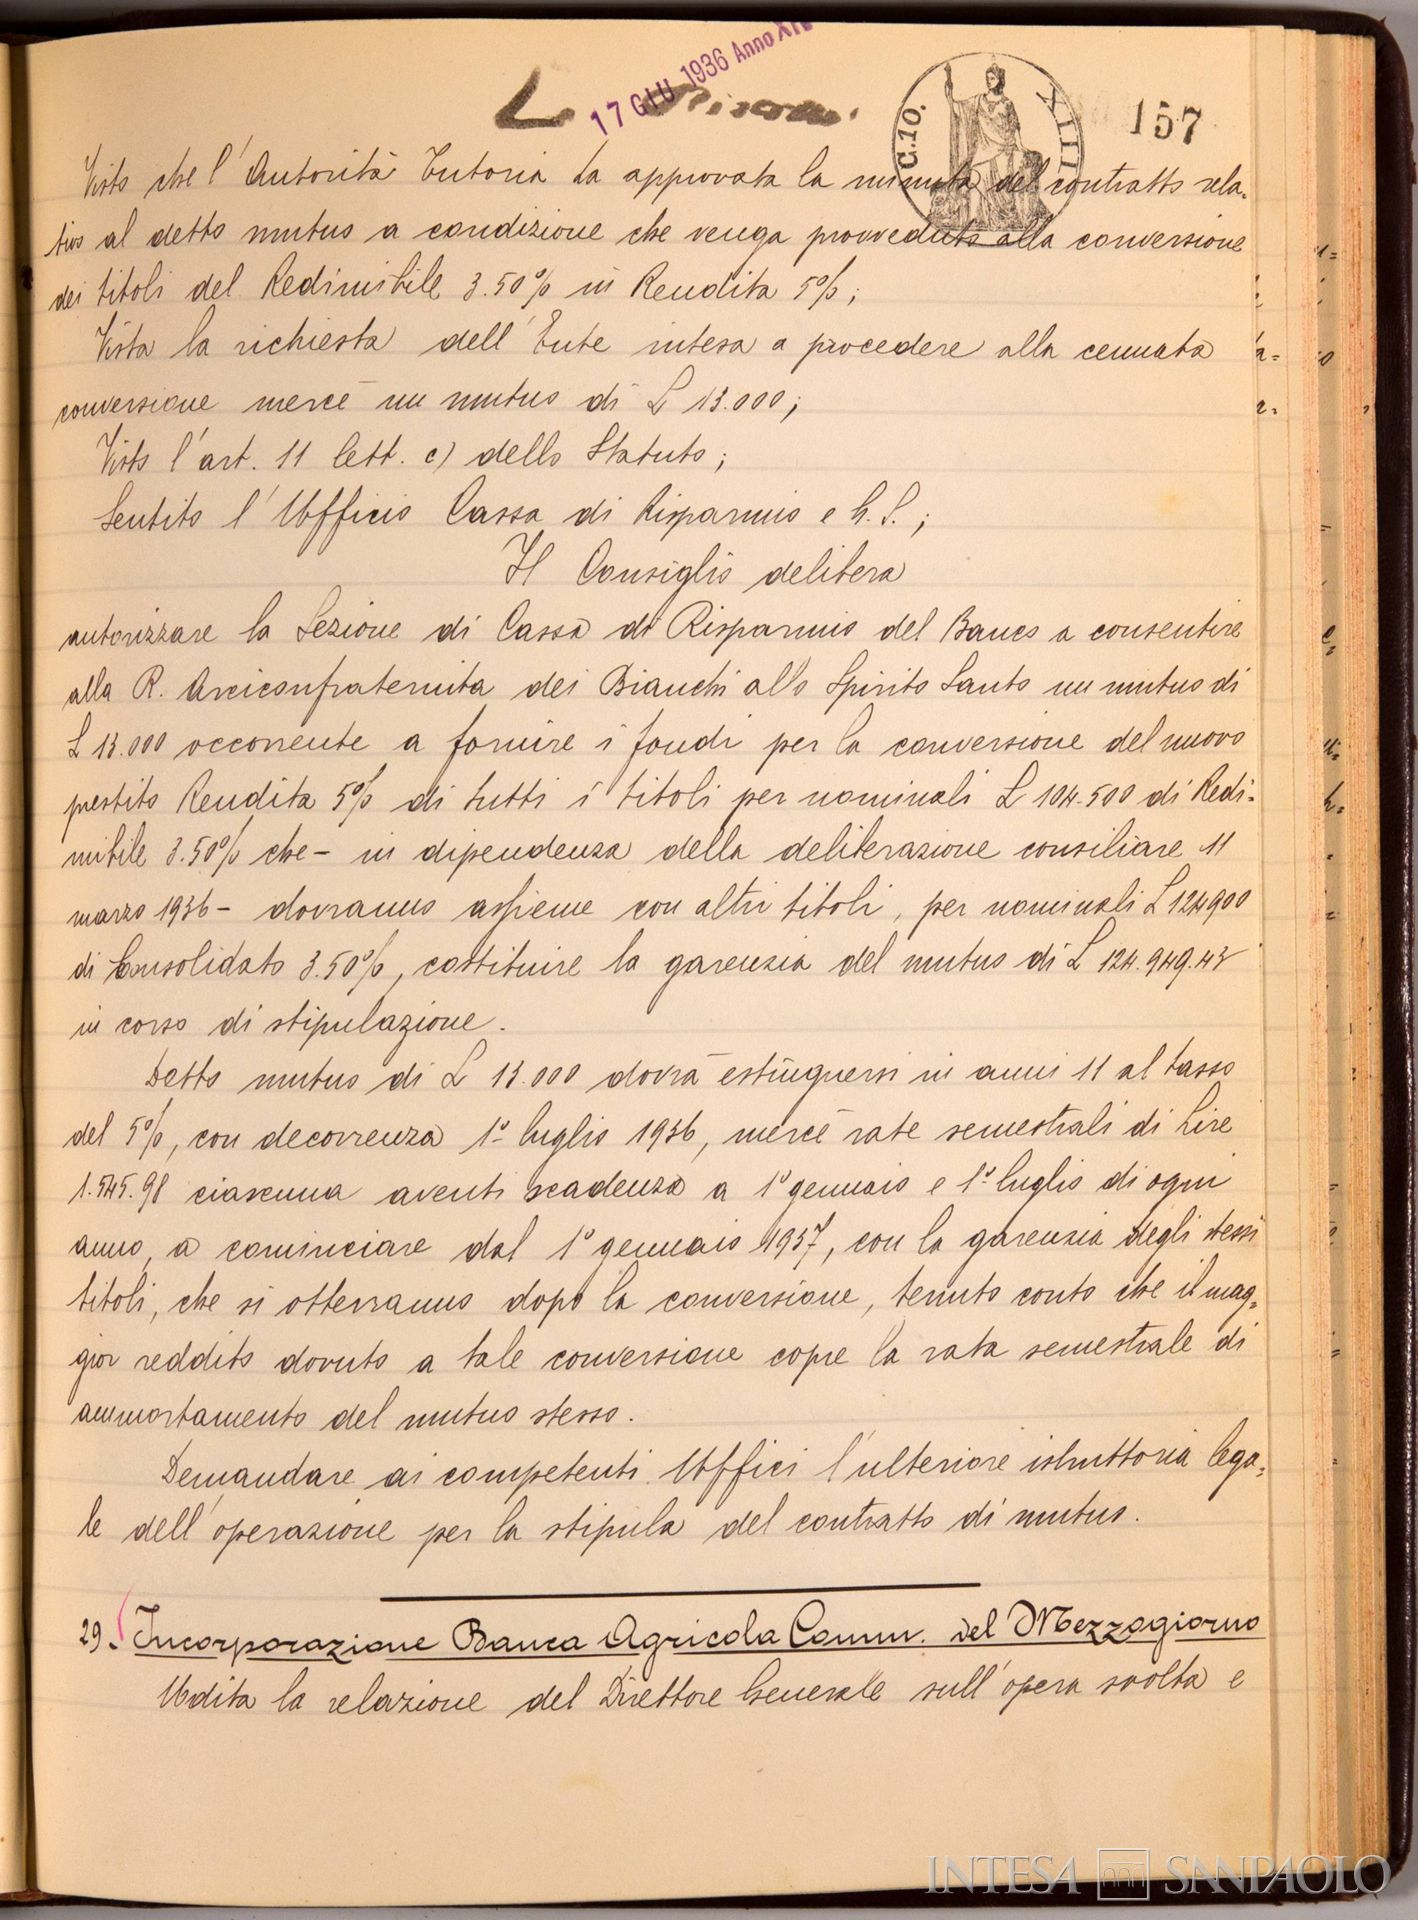 17 GIU 1936 Anno XIV
C.10.
XIII
157
Visto che l'Autorità Tutoria ha approvata la minuta del contratto rela-
tivo al detto mutuo a condizione che venga provveduto alla conversione
dei titoli del Redimibile 3.50% in Rendita 5%;
Vista la richiesta dell'Ente intesa a procedere alla cennata
conversione mercè un mutuo di L 13.000;
Visto l'art. 11 lett. c) dello Statuto;
Sentito l'Ufficio Cassa di Risparmio e G.S.;
Il Consiglio delibera
autorizzare la Sezione di Cassa di Risparmio del Banco a consentire
alla R. Arciconfraternita dei Bianchi allo Spirito Santo un mutuo di
L 13.000 occorrente a fornire i fondi per la conversione del nuovo
prestito Rendita 5% di tutti i titoli per nominali L 104.500 di Redi-
mibile 3.50% che - in dipendenza della deliberazione consiliare 11
marzo 1936 - dovranno assieme con altri titoli, per nominali L 124900
di Consolidato 3.50%, costituire la garenzia del mutuo di L 124.949.43
in corso di stipulazione.
Detto mutuo di L 13.000 dovrà estinguersi in anni 11 al tasso
del 5%, con decorrenza 1º luglio 1936, mercè rate semestrali di Lire
1.545.98 ciascuna aventi scadenza a 1º gennaio e 1º luglio di ogni
anno, a cominciare dal 1º gennaio 1937, con la garenzia degli stessi
titoli, che si otterranno dopo la conversione, tenuto conto che il mag-
gior reddito dovuto a tale conversione copre la rata semestrale di
ammortamento del mutuo stesso.
Demandare ai competenti Uffici l'ulteriore istruttoria lega-
le dell'operazione per la stipula del contratto di mutuo.
29. Incorporazione Banca Agricola Comm. del Mezzogiorno
Udita la relazione del Direttore Generale sull'opera svolta e
INTESA SANPAOLO